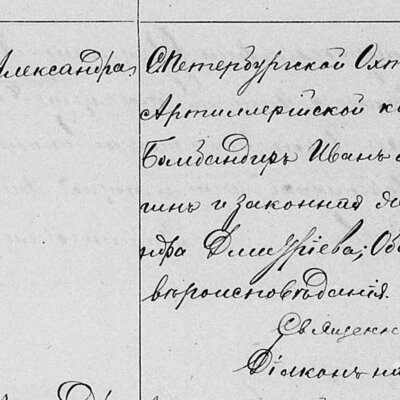 Александра,
С.Петербургской Охт
Артиллерійской ко
Бомбандиръ Иванъ
шнъ и законная
ндра Дмитріева; Об
вѣроисповѣданія.
Священн
Діаконъ на